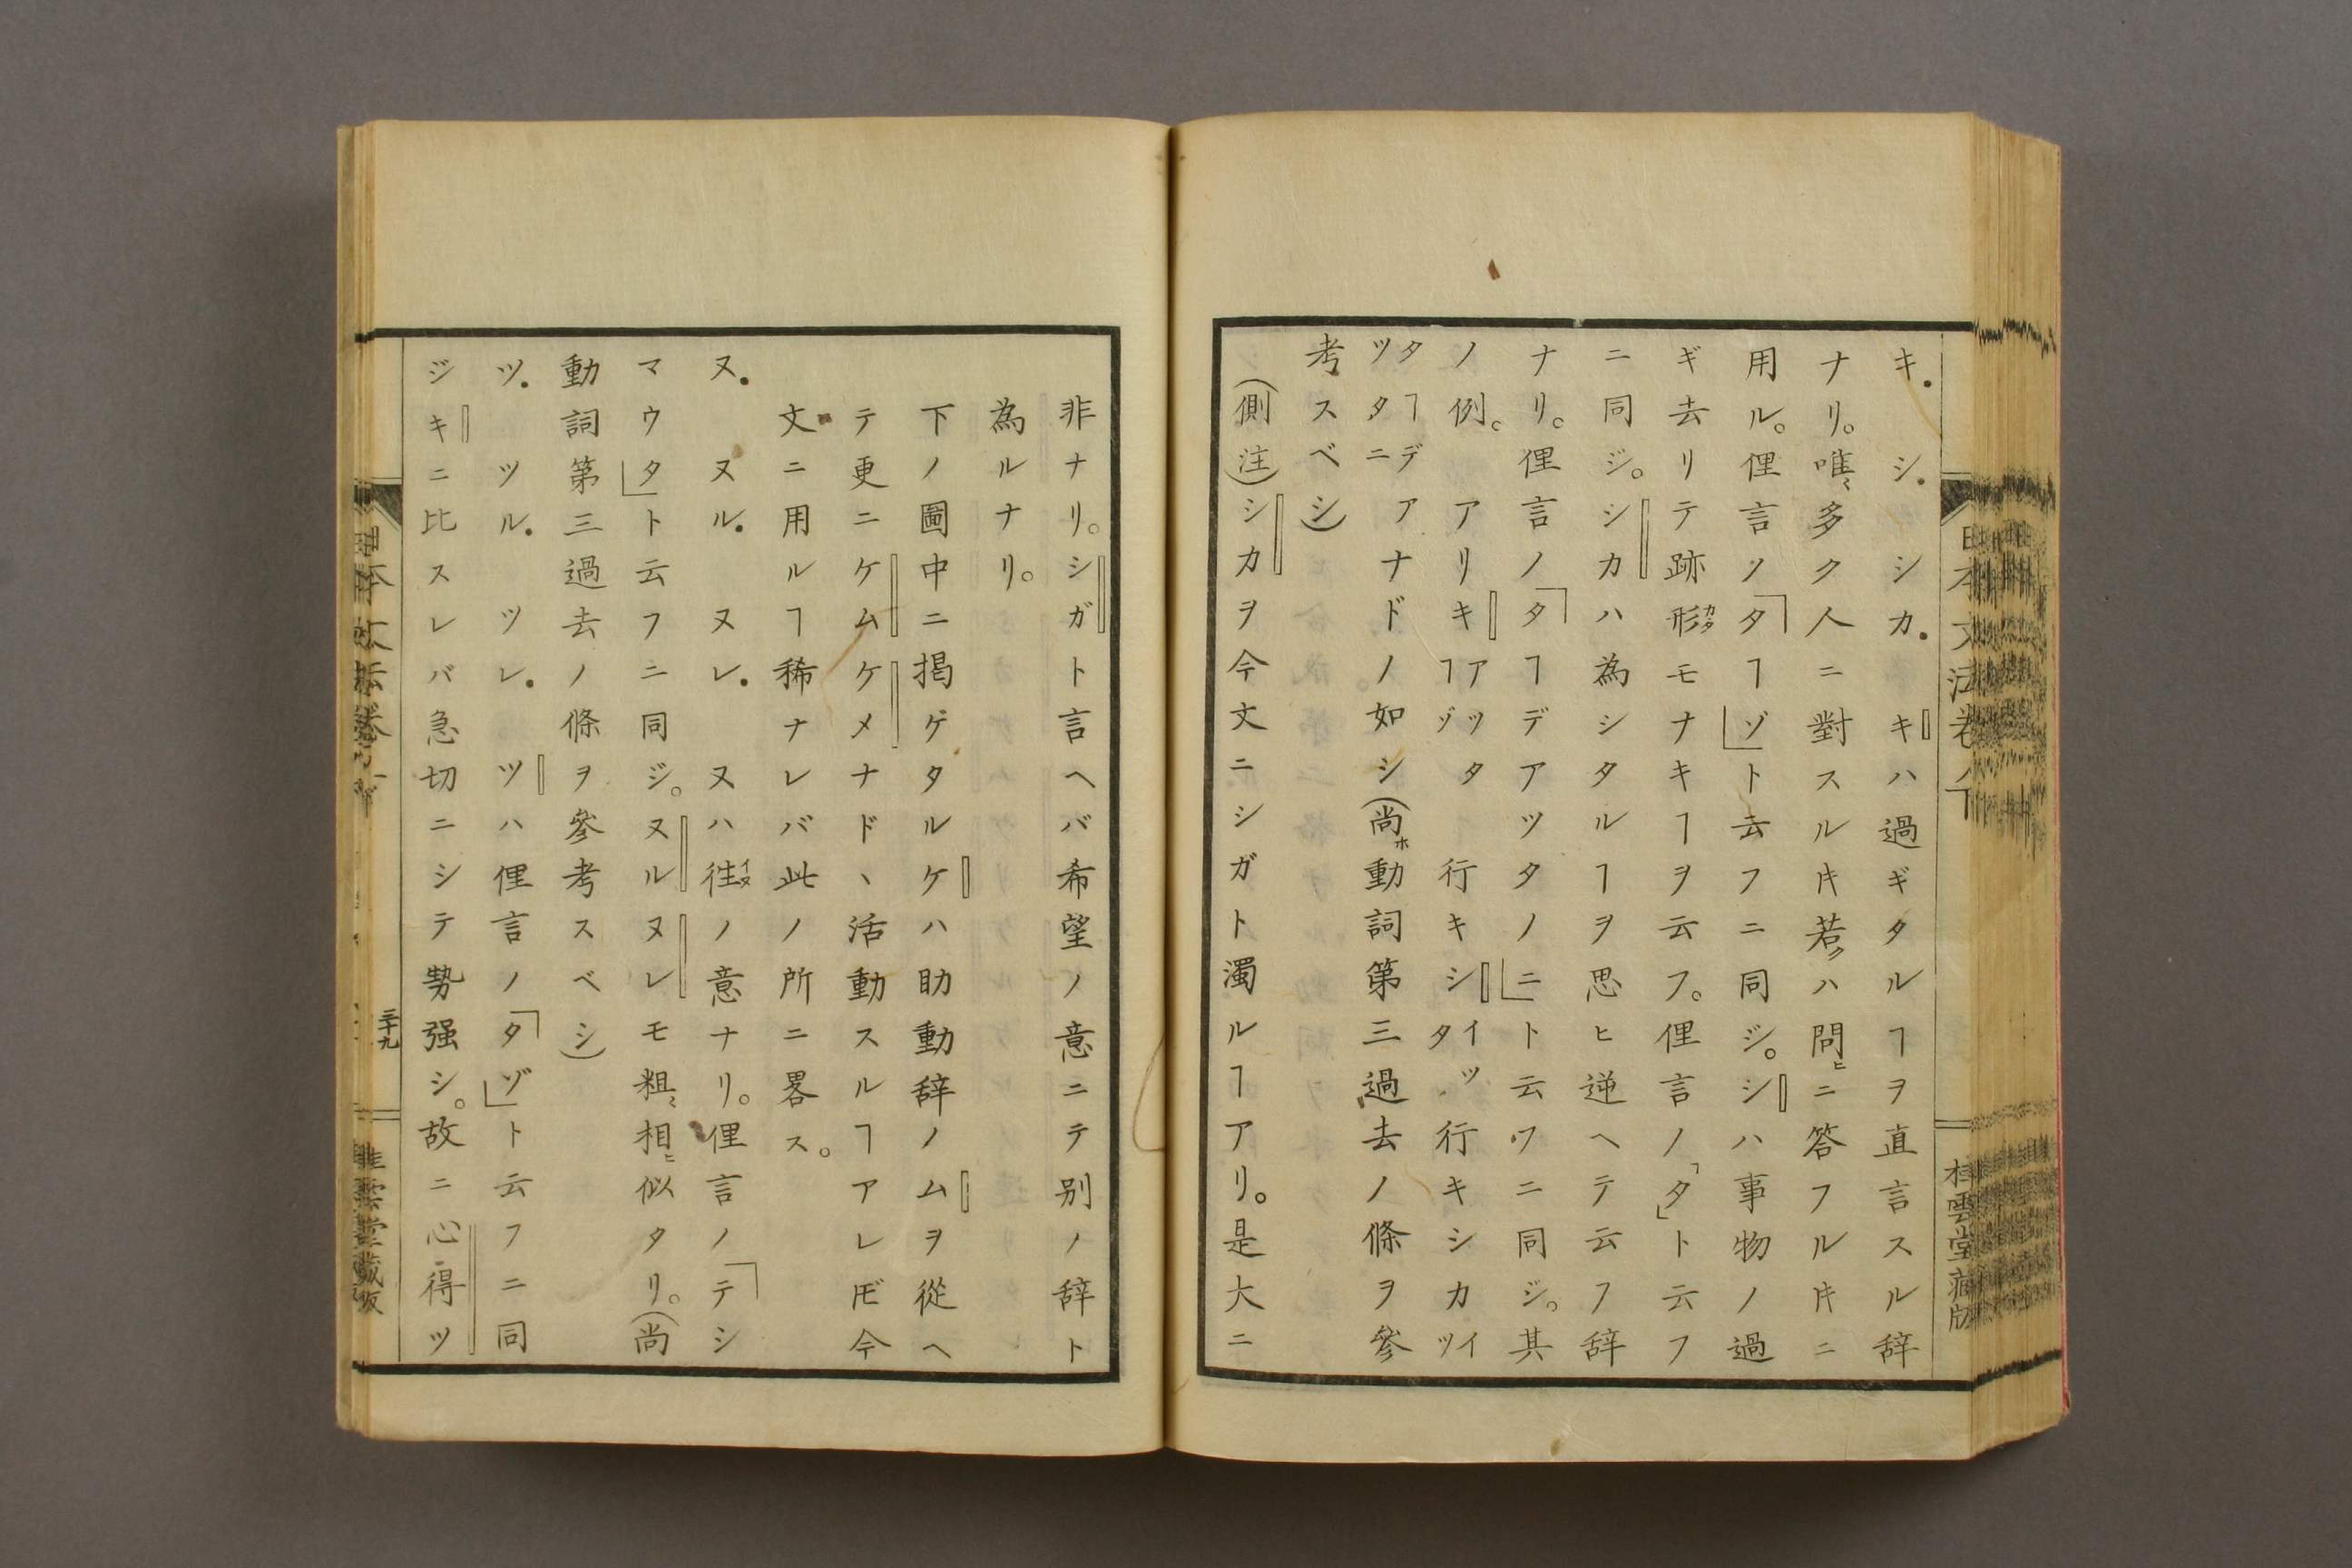 キ シ シカ キハ過ギタルヿヲ直言スル辞
ナリ。唯〻多ク人ニ對スル𪜈若クハ問ヒニ答フル𪜈ニ
用ル。俚言ノ「タヿゾ」ト云フニ同ジ。シハ事物ノ過
ギ去リテ跡形カタモナキヿヲ云フ。俚言ノ「タ」ト云フ
ニ同ジ。シカハ為シタルヿヲ思ヒ逆ヘテ云フ辞
ナリ。俚言ノ「タヿデアツタノニ」ト云フニ同ジ。其
ノ例。 アリキ アツタヿゾ 行キシ イツタ 行キシカ イツ
タヿデアツタニ ツタニナドノ如シ(尚ホ動詞第三過去ノ條ヲ參
考スベシ)
(側注)シカヲ今文ニシガト濁ルヿアリ。是大ニ
非ナリ。シガト言ヘバ希望ノ意ニテ別ノ辞ト
為ルナリ。
下ノ圖中ニ掲ゲタルケハ助動辞ノムヲ從ヘ
テ更ニケムケメナド、活動スルヿアレ𪜈今
文ニ用ルヿ稀ナレバ此ノ所ニ畧ス。
ヌ ヌル ヌレ ヌハ往イヌノ意ナリ。俚言ノ「テシ
マウタ」ト云フニ同ジ。ヌルヌレモ粗〻相ヒ似タリ。(尚
動詞第三過去ノ條ヲ參考スベシ)
ツ ツル ツレ ツハ俚言ノ「タゾ」ト云フニ同
ジキニ比スレバ急切ニシテ勢强シ。故ニ心得ツ
三十九